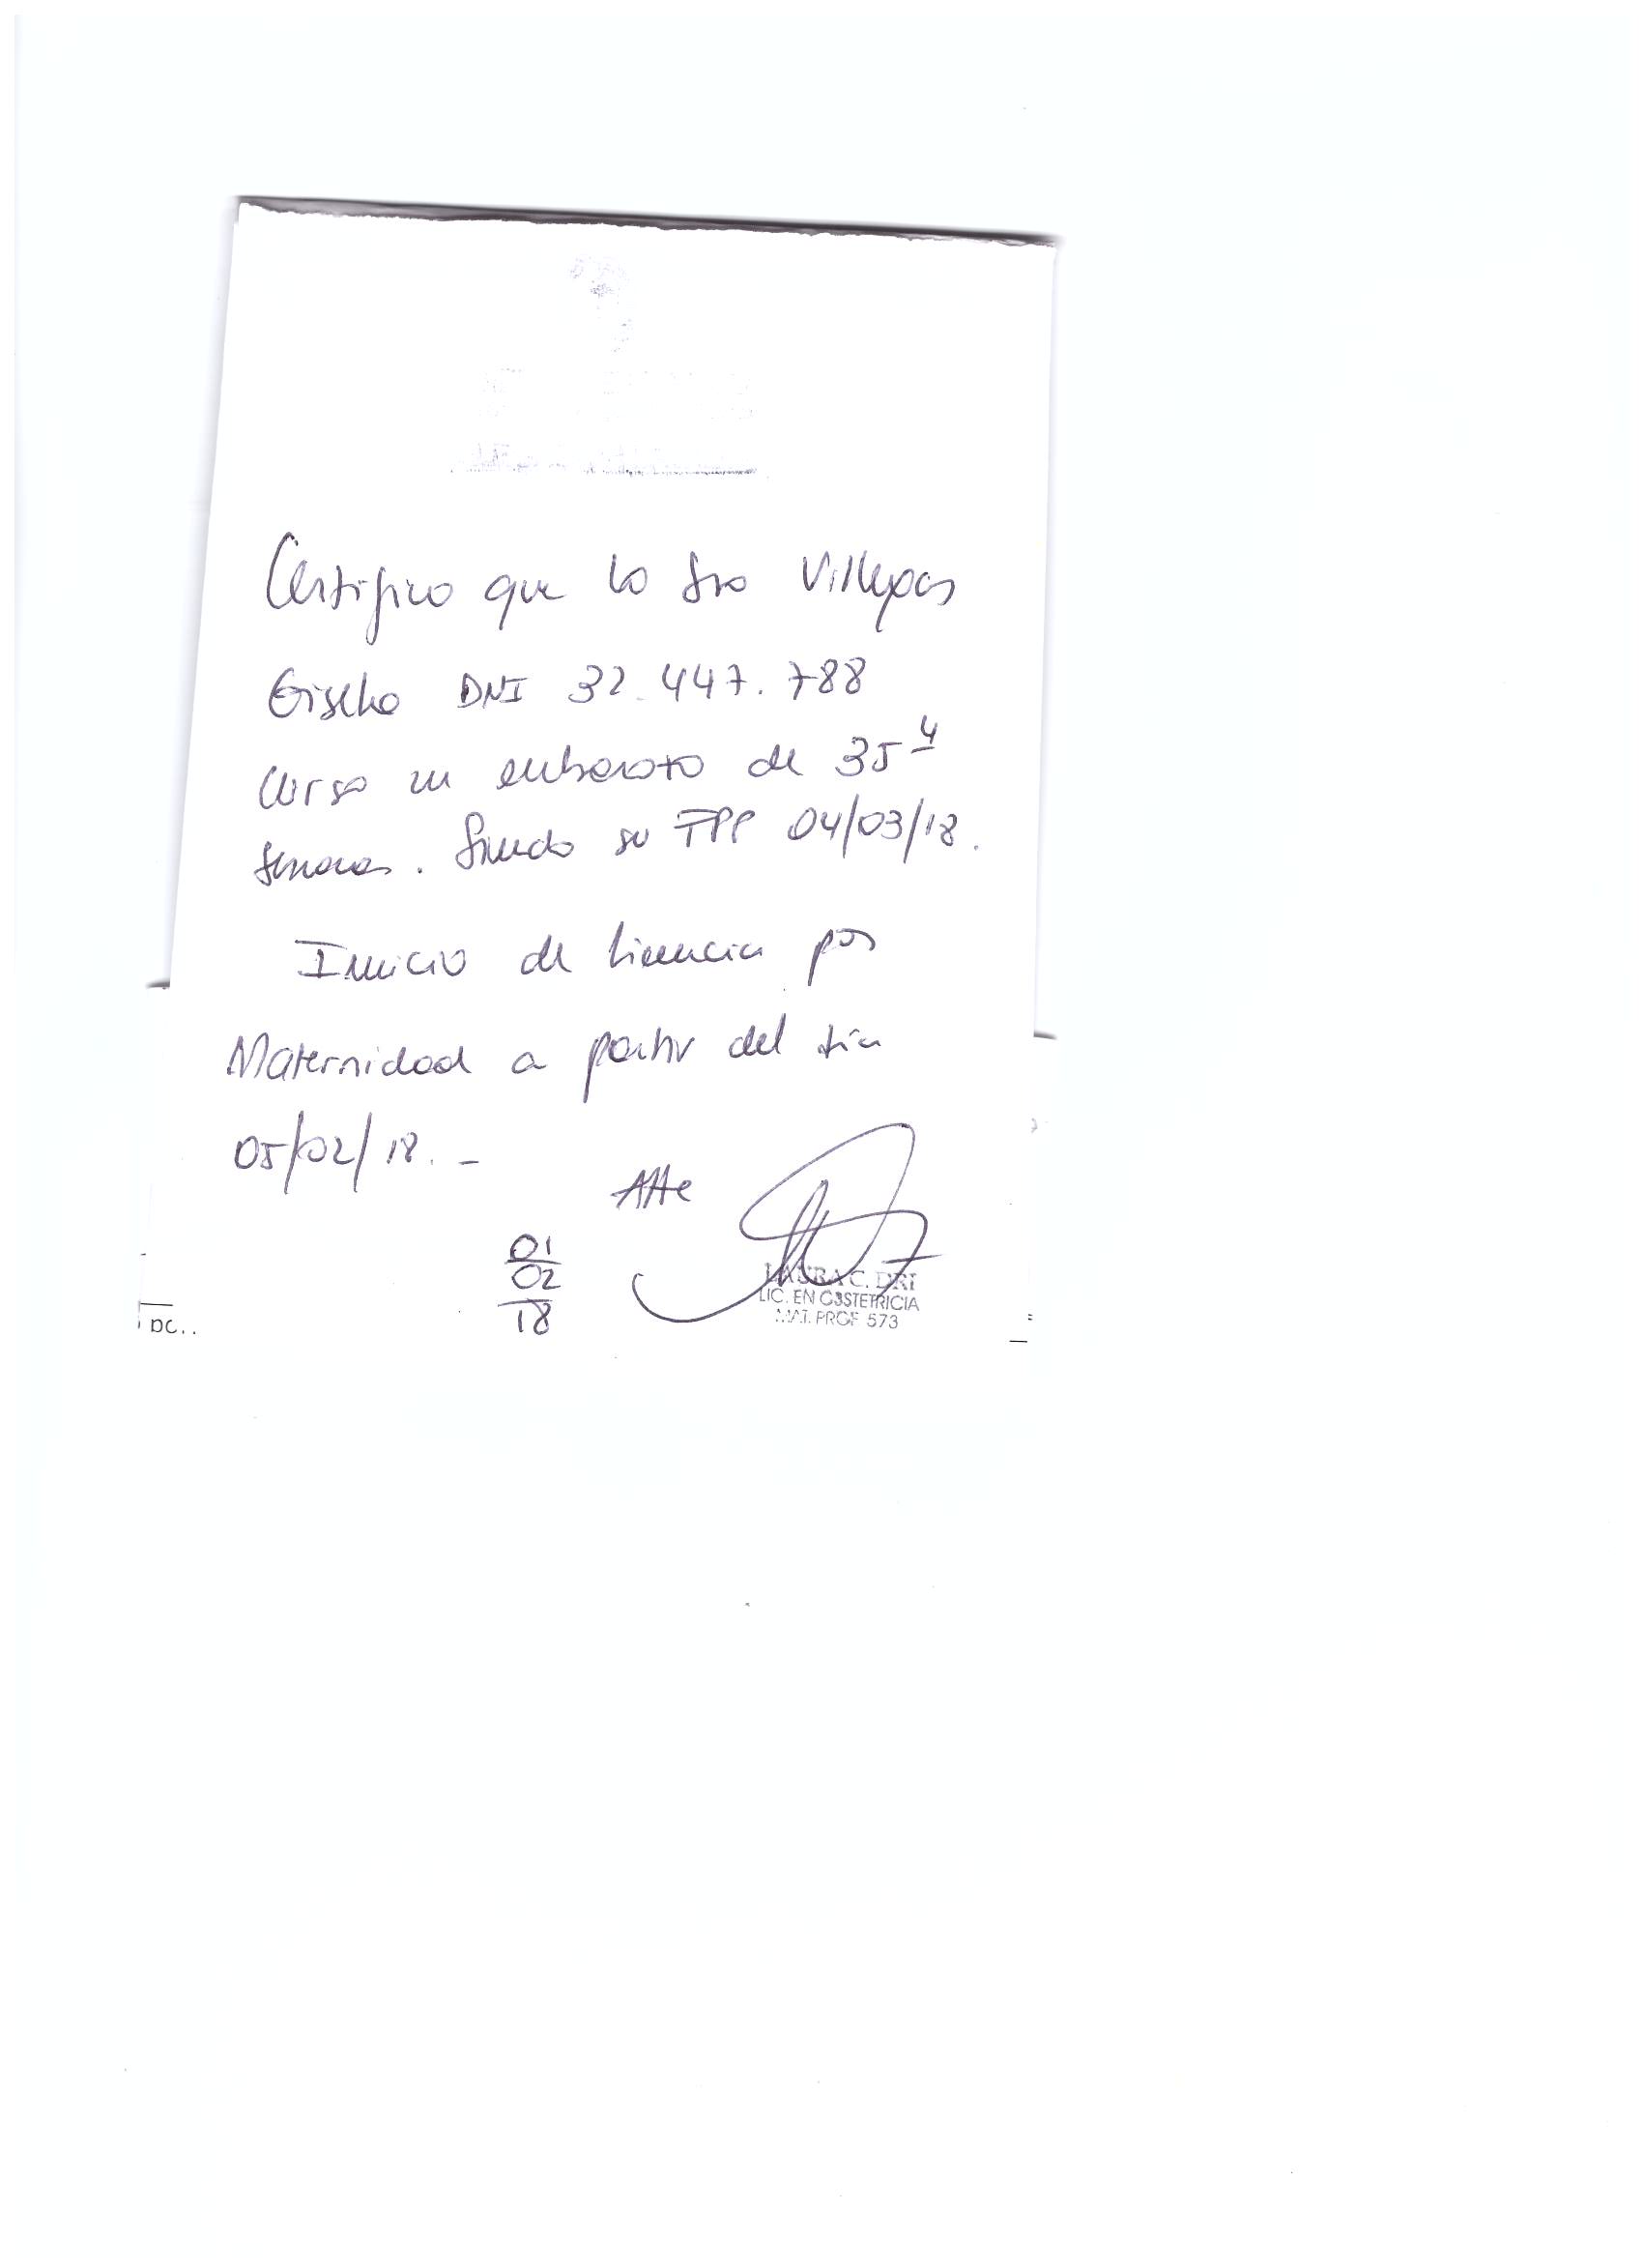 Certifico que la Sra Villegas
Gisela DNI 32.447.788
Cursa un embarazo de 35 4
semanas. Siendo su FPP 04/03/18.
Inicio de licencia por
Maternidad a partir del día
05/02/18. -
Atte
01
02
18
LAURA C. DRI
LIC. EN OBSTETRICIA
MAT. PROF 573